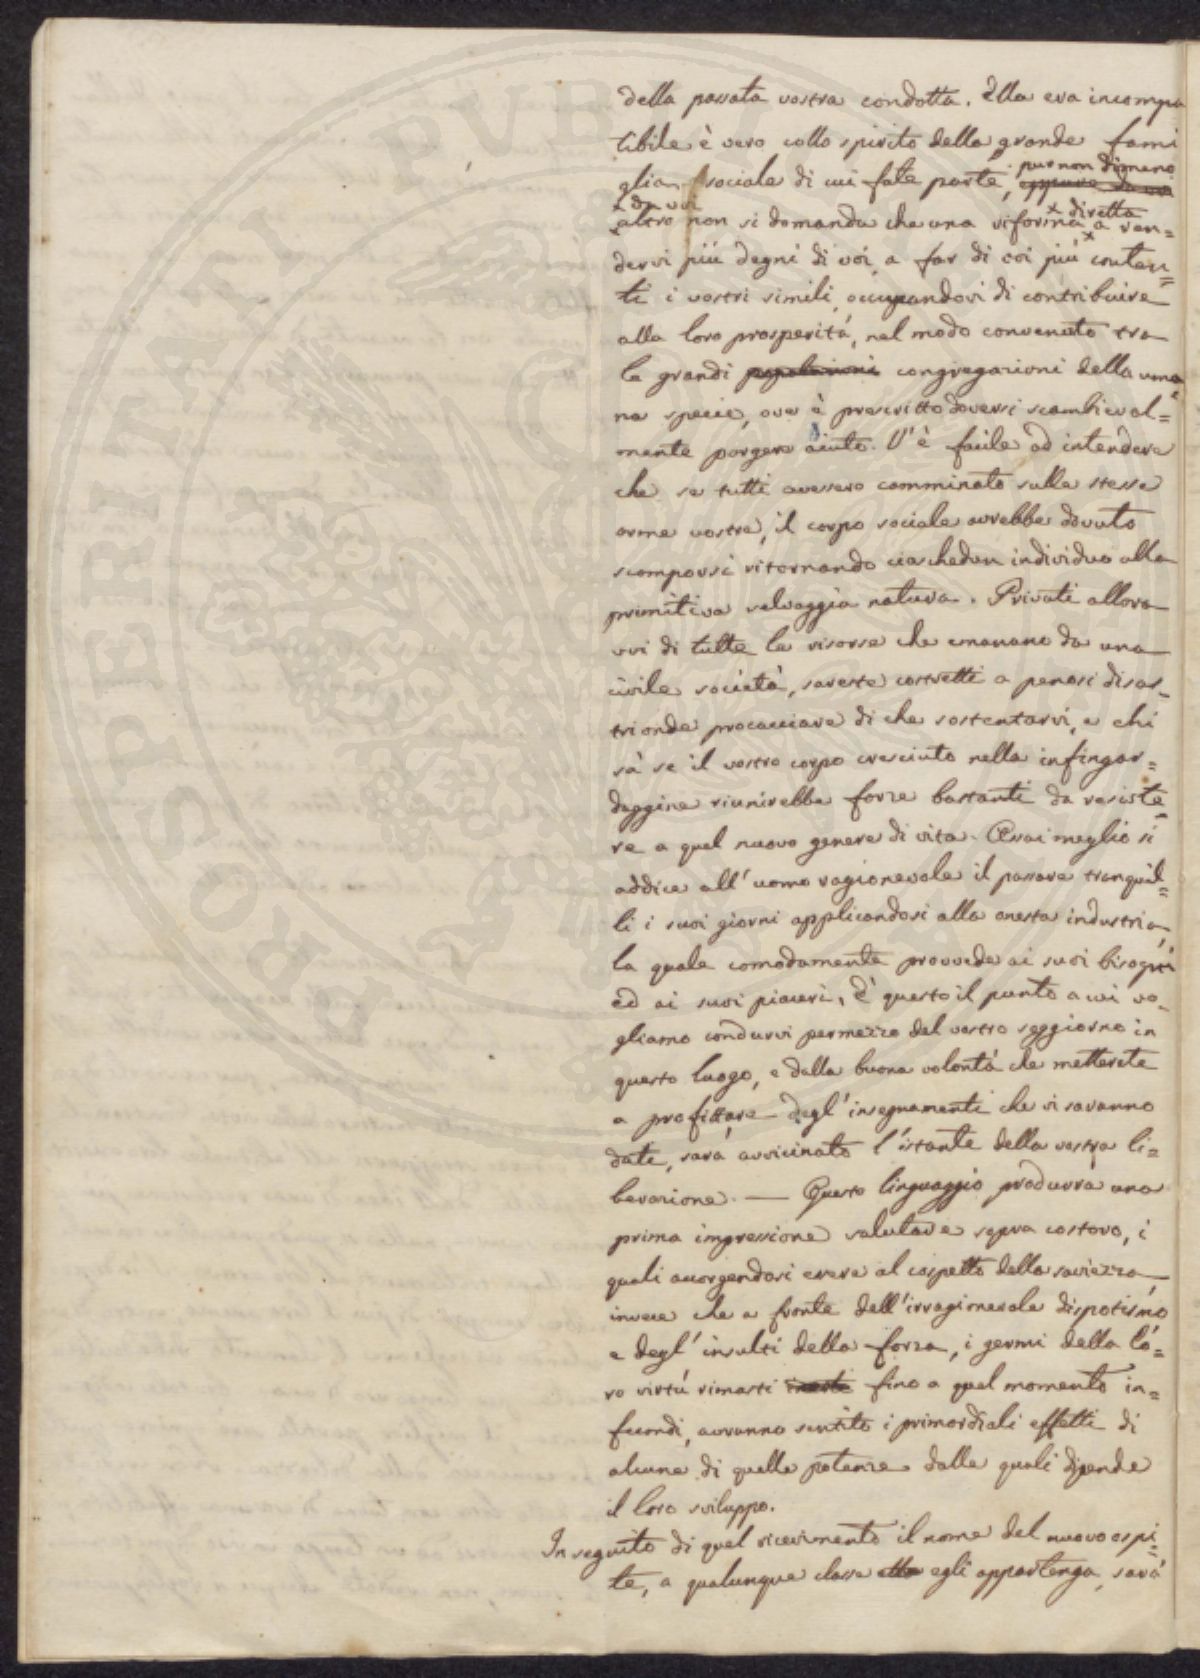 della passata vostra condotta. Ella era incompa
tibile è vero collo spirito della grande fami
glia sociale di cui fate parte, oppure da voi pur non dimeno
da voi
altro non si domanda che una riforma diretta a ren=
dervi più degni di voi, a far di voi più conten=
ti i vostri simili, occupandovi di contribuire
alla loro prosperità, nel modo convenuto tra
le grandi popolazioni congregazioni della uma
na specie, over è prescritto doversi scambieval=
mente porgere aiuto. V'è facile ad intendere
che se tutti avessero camminato sulle stesse
orme vostre, il corpo sociale avrebbe dovuto
scomporsi ritornando ciaschedun individuo alla
primitiva selvaggia natura. Privati allora
voi di tutte le risorse che emanano da una
civile società, sareste costretti a penosi disas=
tri onde procacciare di che sostentarvi, e chi
sà se il vostro corpo cresciuto nella infingar=
daggine riunirebbe forze bastanti da resiste
re a quel nuovo genere di vita. Assai meglio si
addice all'uomo ragionevole il passare tranquil=
li i suoi giorni applicandosi alla onesta industria,
la quale comodamente provvede ai suoi bisogni
ed ai suoi piaceri, è questo il punto a cui vo=
gliamo condurvi permezzo del vostro soggiorno in
questo luogo, e dalla buona volontà che metterete
a profittare degl'insegnamenti che vi saranno
dati, sarà avvicinato l'istante della vostra li=
berazione. — Questo linguaggio produrrà una
prima impressione salutare sopra costoro, i
quali accorgendosi essere al cospetto della saviezza,
invece che a fronte dell'irragionevole dispotismo
e degl'insulti della forza, i germi della lo=
ro virtù rimasti inerte fino a quel momento in=
fecondi, avranno sentito i primordiali effetti di
alcune di quelle potenze dalle quali dipende
il loro sviluppo.
In seguito di quel ricevimento il nome del nuovo ospi=
te, a qualunque classe egli appartenga, sarà
PROSPERITATI PUBL